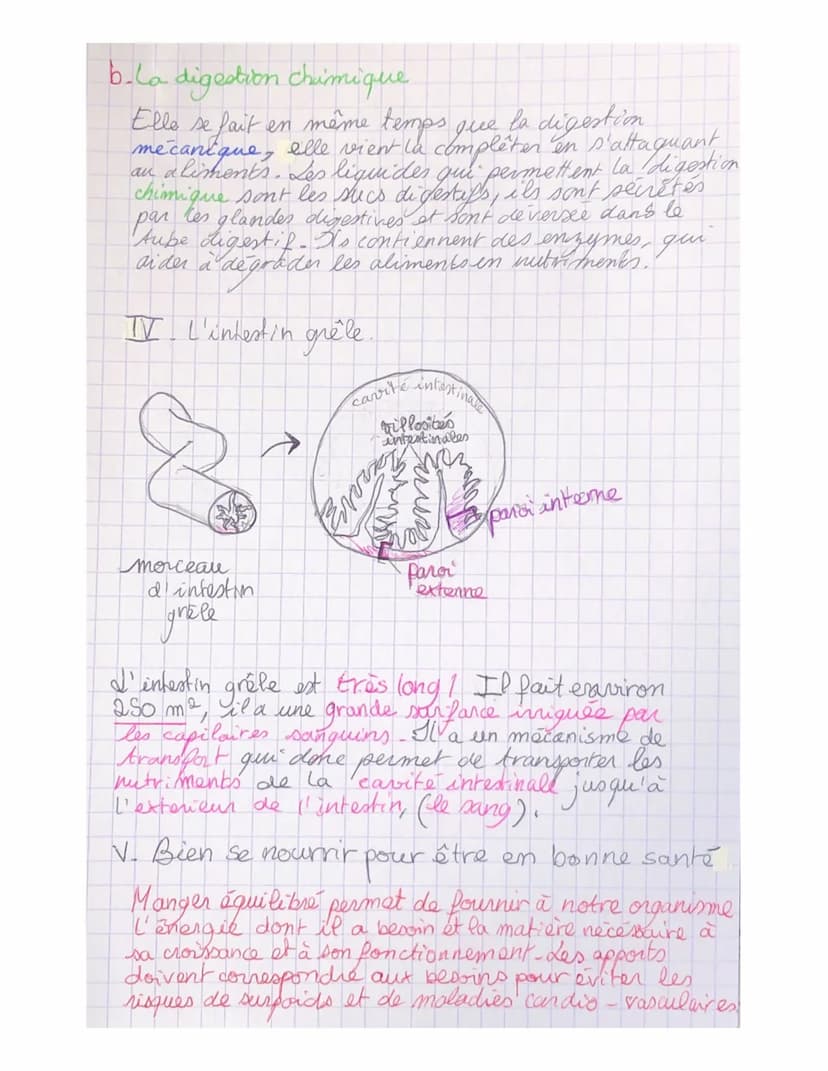 b. La digestion chimique
Elle se fait en même temps que la digestion
mécanique, elle vient la compléter en s'attaquant
au aliments. Les liquides qui permettent la digestion
chimique sont les sucs digestifs, ils sont sécrétés
par les glandes digestives et sont déversée dans le
tube digestif. Ils contiennent des enzymes, qui
aider à dégrader les aliments en nutriments.
IV. L'intestin grêle.
cavité intestinale
villosités
intestinales
paroi interne
morceau
d'intestin
grêle
paroi
externe
L'intestin grêle est très long ! Il fait environ
250 m², il a une grande surface irriguée par
les capilaires sanguins. Il a un mécanisme de
transport qui donc permet de transporter les
nutriments de la cavité intestinale jusqu'à
l'exterieur de l'intestin, (le sang).
V. Bien se nourrir pour être en bonne santé
Manger équilibré permet de fournir à notre organisme
l'énergie dont il a besoin et la matière nécessaire à
sa croissance et à son fonctionnement. Les apports
doivent correspondre aux besoins pour éviter les
risques de surpoids et de maladies cardio-vasculaires.